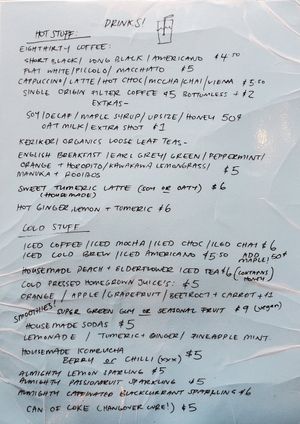 DRINKS!
HOT STUFF:
EIGHTHIRTY COFFEE:
SHORT BLACK / LONG BLACK / AMERICANO $4.50
FLAT WHITE / PICCOLO / MACCHIATO $5
CAPPUCCINO / LATTE / HOT CHOC / MOCHA / CHAI / VIENA $5.50
SINGLE ORIGIN FILTER COFFEE $5 BOTTOMLESS + $2
EXTRAS -
SOY / DECAF / MAPLE SYRUP / UPSIZE / HONEY 50¢
OAT MILK / EXTRA SHOT $1
KERIKERI ORGANICS LOOSE LEAF TEAS -
ENGLISH BREAKFAST / EARL GREY / GREEN / PEPPERMINT /
ORANGE + HOROPITO / KAWAKAWA LEMONGRASS /
MANUKA + ROOIBOS $5
SWEET TUMERIC LATTE (SOY OR OATY) $6
(HOUSEMADE)
HOT GINGER, LEMON + TUMERIC $6
COLD STUFF
ICED COFFEE / ICED MOCHA / ICED CHOC / ICED CHAI $6
ICED COLD BREW / ICED AMERICANO $5.50 ADD MAPLE! 50¢
HOUSEMADE PEACH + ELDERFLOWER ICED TEA $6 (CONTAINS HONEY)
COLD PRESSED HOMEGROWN JUICE'S: $5
ORANGE / APPLE / GRAPEFRUIT / BEETROOT + CARROT + $1
SMOOTHIES! SUPER GREEN GUM OR SEASONAL FRUIT $9 (VEGAN)
HOUSEMADE SODAS $5
LEMONADE / TUMERIC + GINGER / PINEAPPLE MINT
HOUSEMADE KOMBUCHA
BERRY OR CHILLI (XXX) $5
ALMIGHTY LEMON SPARKLING $5
ALMIGHTY PASSIONFRUIT SPARKLING $5
ALMIGHTY CAFFINATED BLACKCURRANT SPARKLING $6
CAN OF COKE (HANGOVER CURE!) $5